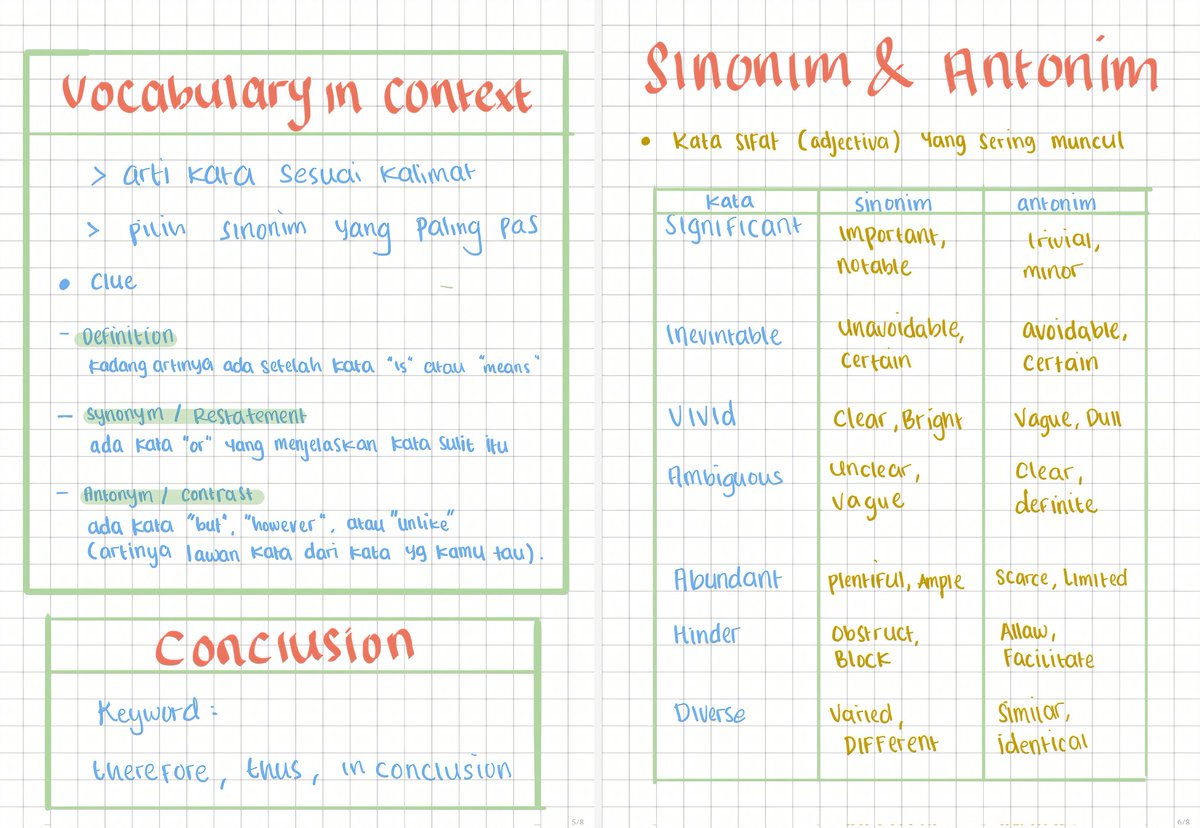 Vocabulary in Context
> arti kata sesuai kalimat
> pilih sinonim yang paling pas
• Clue
- Definition
kadang artinya ada setelah kata "is" atau "means"
- Synonym / Restatement
ada kata "or" yang menjelaskan kata sulit itu
- Antonym / contrast
ada kata "but", "however", atau "unlike"
(artinya lawan kata dari kata yg kamu tau).
Conclusion
Keyword :
therefore, thus, in conclusion
5/8
Sinonim & Antonim
• Kata sifat (adjectiva) yang sering muncul
kata sinonim antonim
Significant important, trivial,
notable minor
Inevintable unavoidable, avoidable,
certain certain
Vivid Clear, Bright Vague, Dull
Ambiguous unclear, Clear,
vague definite
Abundant plentiful, Ample scarce, Limited
Hinder Obstruct, Allaw,
Block Facilitate
Diverse Varied, Similar,
Different identical
6/8